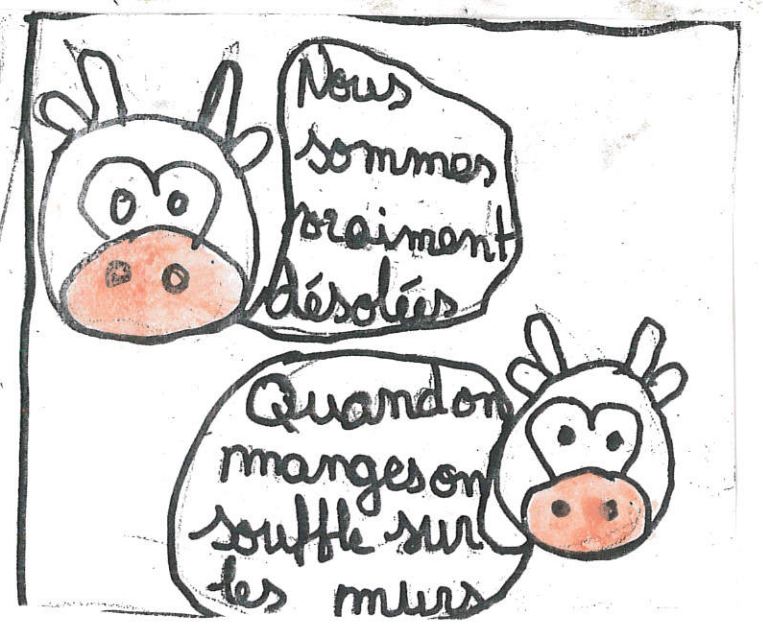 Nous
sommes
vraiment
désolées
Quand on
manges on
souffle sur
les murs